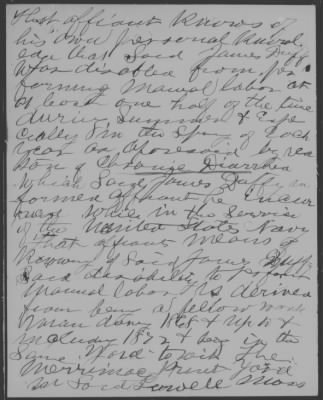 that affiant knows of
his own personal knowl
edge that said James Duffy
was disabled from per
forming manual labor at
at least one half of the time
during summer & espe
cially in the Spring of each
year as aforesaid by rea
son of Chronic Diarrhea
which said James Duffy in
formed affiant he incur
while in the service
of the United States Navy
That affiant means of
knowing of said James Duffy
said disability to perform
manual labor is derived
from being a fellow work
man during 1868 & up to &
including 1872 & in the
same the
Merrimac Print
in said Lowell Mass